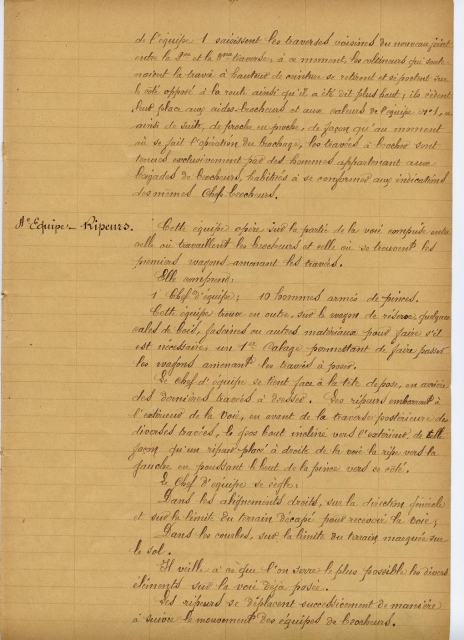 de l'équipe 1 saisissent les traverses voisines du nouveau joint
entre la 2me et la 3me traverse; à ce moment, les coltineurs qui soute-
naient la travée à hauteur de ceinture se retirent et se portent sur
le côté opposé à la route ainsi qu'il a été dit plus haut; ils cèdent
leur place aux aides-brocheurs et aux caleurs de l'équipe n° 1, et
ainsi de suite, de proche en proche, de façon qu'au moment
où se fait l'opération du brochage, les travées à brocher sont
tenues exclusivement par des hommes appartenant aux
brigades de brocheurs, habitués à se conformer aux indications
des mêmes Chefs brocheurs.
Equipe - Ripeurs.
Cette équipe opère sur la partie de la voie comprise entre
celle où travaillent les brocheurs et celle où se trouvent les
premiers wagons amenant les travées.
Elle comprend:
1 Chef d'équipe; 10 hommes armés de pinces.
Cette équipe trouve en outre, sur le wagon de réserve quelques
cales de bois, fascines ou autres matériaux pour faire s'il
est nécessaire, un 1er calage permettant de faire passer
les wagons amenant les travées à poser.
Le chef d'équipe se tient face à la tête de pose, en arrière
des dernières travées à dresser. Les ripeurs embarrent à
l'extérieur de la voie, en avant de la traverse postérieure des
diverses travées, le gros bout incliné vers l'extérieur, de telle
façon qu'un ripeur placé à droite de la voie la ripe vers la
gauche en poussant le haut de la pince vers ce côté.
Le Chef d'équipe se règle:
Dans les alignements droits, sur la direction générale
et sur la limite du terrain décapé pour recevoir la voie;
Dans les courbes, sur la limite du terrain marquée sur
le sol.
Il veille à ce que l'on serre le plus possible les divers
éléments sur la voie déjà posée.
Les ripeurs se déplacent successivement de manière
à suivre le mouvement des équipes de brocheurs.